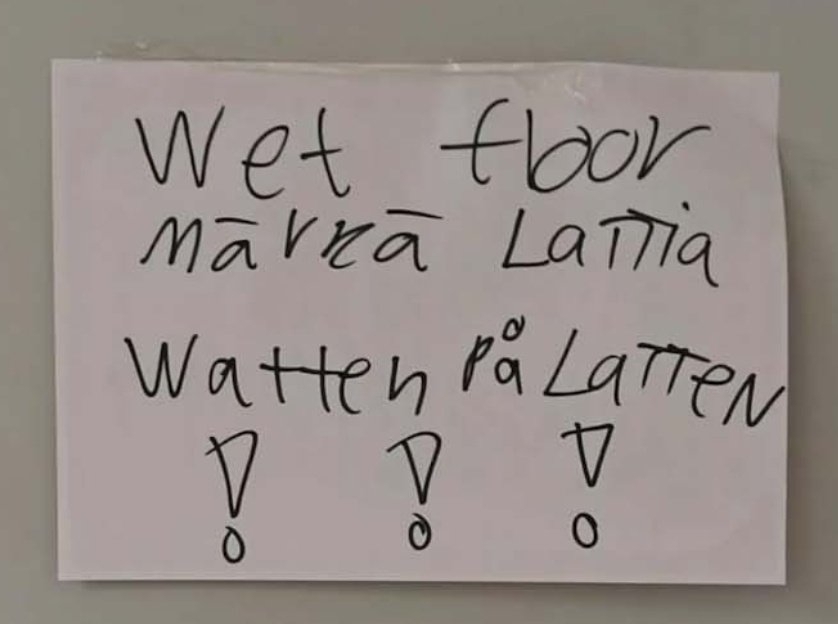 Wet floor
Märkä Lattia
Watten på Latten
! ! !